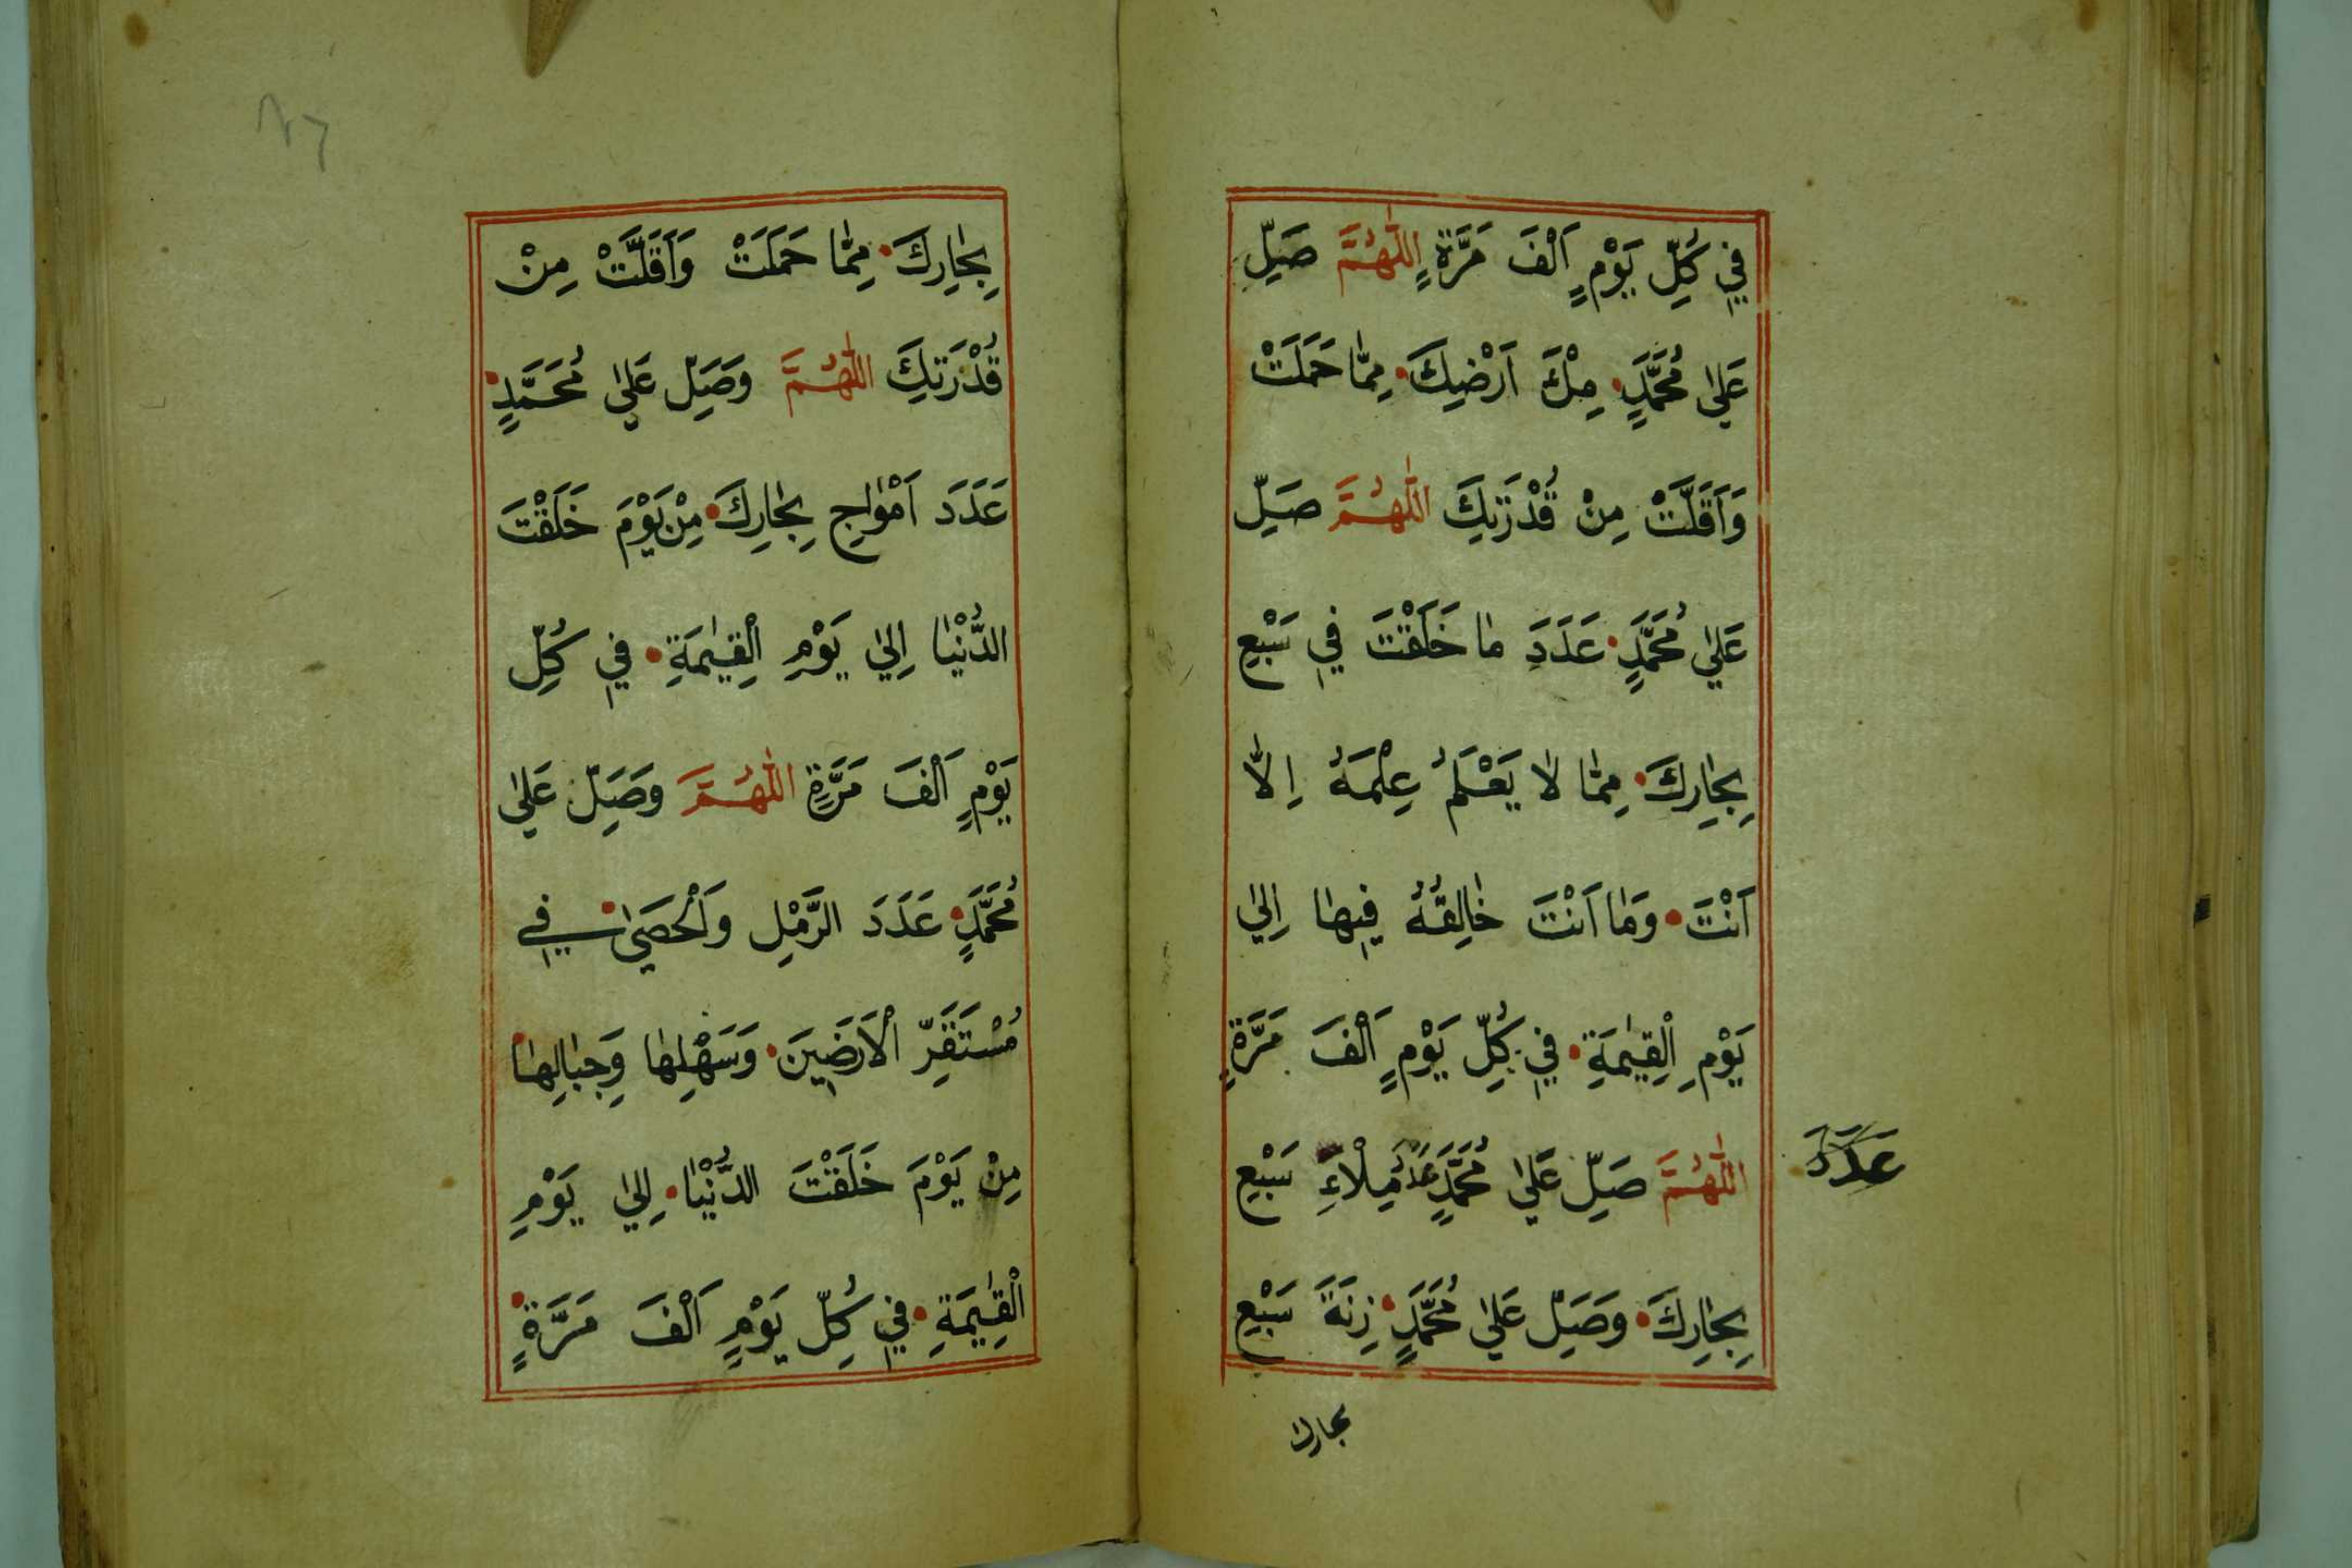 فِي كُلِّ يَوْمٍ اَلْفَ مَرَّةٍ اَللّٰهُمَّ صَلِّ
عَلٰي مُحَمَّدٍ مِلْءَ اَرْضِكَ مِمّٰا حَمَلَتْ
وَاَقَلَّتْ مِنْ قُدْرَتِكَ اَللّٰهُمَّ صَلِّ
عَلٰي مُحَمَّدٍ عَدَدَ مٰا خَلَقْتَ فِي سَبْعِ
بِحٰارِكَ مِمّٰا لٰا يَعْلَمُ عِلْمَهُ اِلّٰا
اَنْتَ وَمٰا اَنْتَ خٰالِقُهُ فِيهٰا اِلٰي
يَوْمِ الْقِيٰمَةِ فِي كُلِّ يَوْمٍ اَلْفَ مَرَّةٍ
اَللّٰهُمَّ صَلِّ عَلٰي مُحَمَّدٍ عَدَدَ مِلْاءَِ سَبْعِ
عَدَدَ
بِحٰارِكَ وَصَلِّ عَلٰي مُحَمَّدٍ زِنَةَ سَبْعِ
بحارك
٧٦
بِحٰارِكَ مِمّٰا حَمَلَتْ وَاَقَلَّتْ مِنْ
قُدْرَتِكَ اَللّٰهُمَّ وَصَلِّ عَلٰي مُحَمَّدٍ
عَدَدَ اَمْوٰاجِ بِحٰارِكَ مِنْ يَوْمَ خَلَقْتَ
الدُّنْيٰا اِلٰي يَوْمِ الْقِيٰمَةِ فِي كُلِّ
يَوْمٍ اَلْفَ مَرَّةٍ اَللّٰهُمَّ وَصَلِّ عَلٰي
مُحَمَّدٍ عَدَدَ الرَّمْلِ وَالْحَصٰي فِي
مُسْتَقَرِّ الْاَرَضِينَ وَسَهْلِهٰا وَجِبٰالِهٰا
مِنْ يَوْمَ خَلَقْتَ الدُّنْيٰا اِلٰي يَوْمِ
الْقِيٰمَةِ فِي كُلِّ يَوْمٍ اَلْفَ مَرَّةٍ